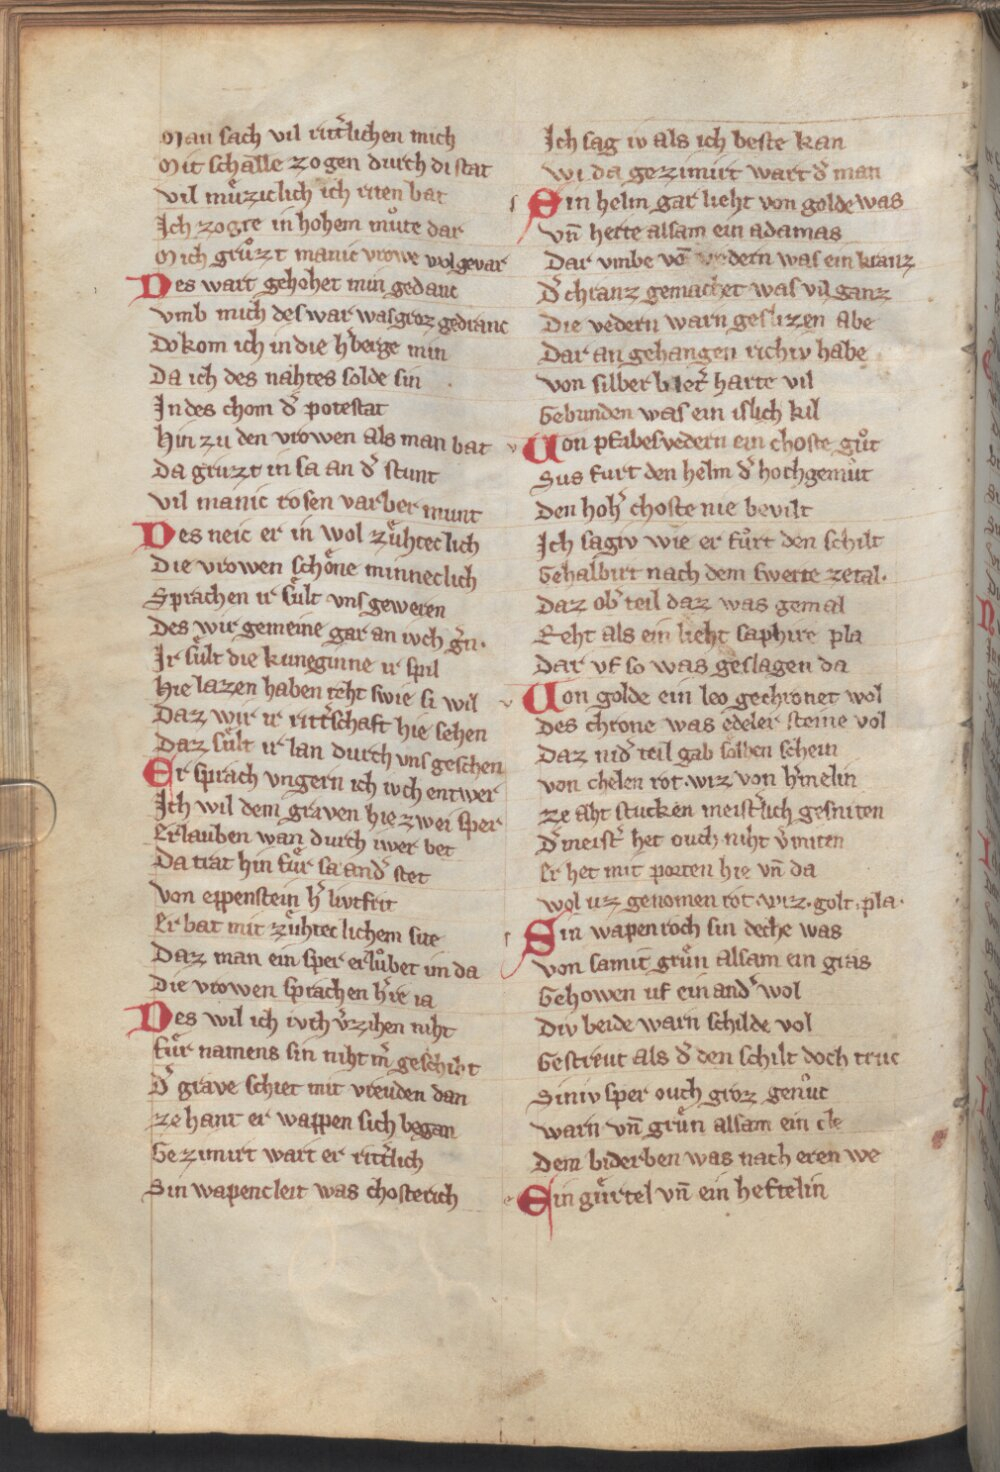 Man sach vil ritt̄lichen mich
Mit schalle zogen durch di stat
vil mu̍ziclich ich riten bat
Ich zogte in hohem mu̍te dar
Mich gruͦzt manic vrowe wol gevar
Des wart gehohet min gedanc
vmb mich des war was groz gedranc
Do kom ich in die h̄berge min
Da ich des nahtes solde sin
In des chom d̄ potestat
hin zu den vrowen als man bat
Da gruzt in sa an d̄ stunt
vil manic rosen varber munt
Des neic er in wol zuͤhteclich
Die vrowen schoͤne minneclich
Sprachen ir suͤlt vns geweren
Des wir gemeine gar an iuch ḡn.
Ir suͤlt die kuneginne ir spil
hie lazen haben reht swie si wil
Daz wir ir ritt̄schaft hie sehen
Daz suͤlt ir lan durch vns geschen
Er sprach vngern ich iuch entwer
Ich wil dem graven hie zwei sper
Erlauben wan durch iwer bet
Da trat hin fuͤr sa and̄ stet
von eppenstein h̄ liutfrit
Er bat mit zuͤhteclichem site
Daz man ein sper erluͦbet im da
Die vrowen sprachen h̄re ia
Des wil ich iuch v̄zihen niht
fuͤr namens sin niht m̄ geschiht
d̄ grave schiet mit vreuden dan
ze hant er wappen sich began
Gezimirt wart er ritt̄lich
Sin wapencleit was chosterich
Ich sag iv als ich beste kan
wi da gezimirt wart d̄ man
Sin helm gar lieht von golde was
vn̄ herte alsam ein adamas
Dar vmbe vō vedern was ein kranz
d̄ chranz gemachet was vil ganz
Die vedern warn geslizen abe
Dar an gehangen richiv habe
von silber blet̄ harte vil
Gebunden was ein islich kil
Von pfabesvedern ein choste guͦt
Sus furt den helm d̄ hochgemut
den hoh̄ choste nie bevilt
Ich sagiv wie er fuͦrt den schilt
Gehalbirt nach dem swerte zetal.
Daz ob̄ teil daz was gemal
Reht als ein lieht saphire pla
Dar vf so was geslagen da
Von golde ein leo gechronet wol
des chrone was edeler steine vol
Daz nid̄ teil gab solhen schein
von chelen rot. wiz von h̄melin
ze aht stucken meist̄lich gesniten
d̄ meist̄ het ouch niht v̄miten
Er het mit porten hie vn̄ da
wol uz genomen rot. wiz. golt. pla.
Sin wapenroch sin deche was
von samit gruͤn alsam ein gras
Gehowen uf ein and̄ wol
Div beide warn schilde vol
Gestreut als d̄ den schilt doch truc
Siniv sper ouch groz genuͦc
warn vn̄ gruͤn alsam ein cle
Dem biderben was nach eren we
Ein guͤrtel vn̄ ein heftelin